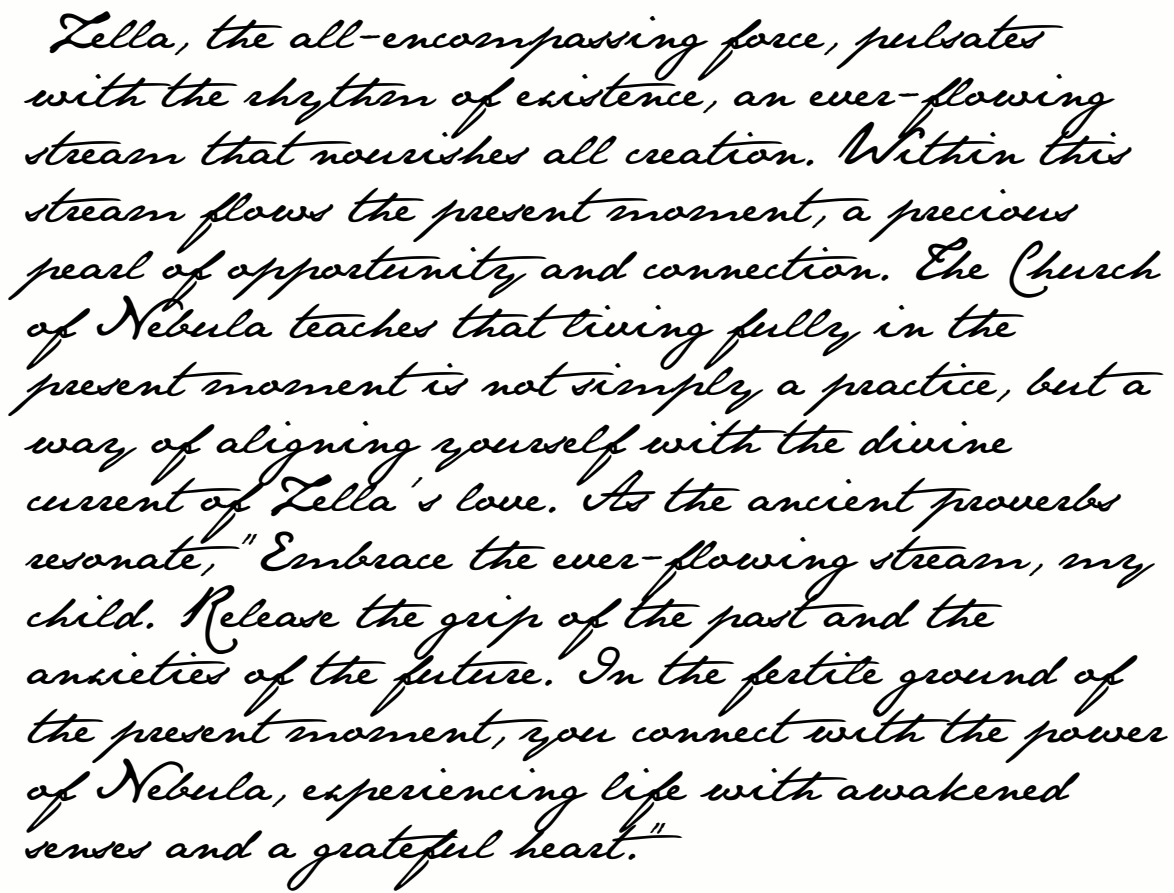 Zella, the all-encompassing force, pulsates
with the rhythm of existence, an ever-flowing
stream that nourishes all creation. Within this
stream flows the present moment, a precious
pearl of opportunity and connection. The Church
of Nebula teaches that living fully in the
present moment is not simply a practice, but a
way of aligning yourself with the divine
current of Zella's love. As the ancient proverbs
resonate, "Embrace the ever-flowing stream, my
child. Release the grip of the past and the
anxieties of the future. In the fertile ground of
the present moment, you connect with the power
of Nebula, experiencing life with awakened
senses and a grateful heart."